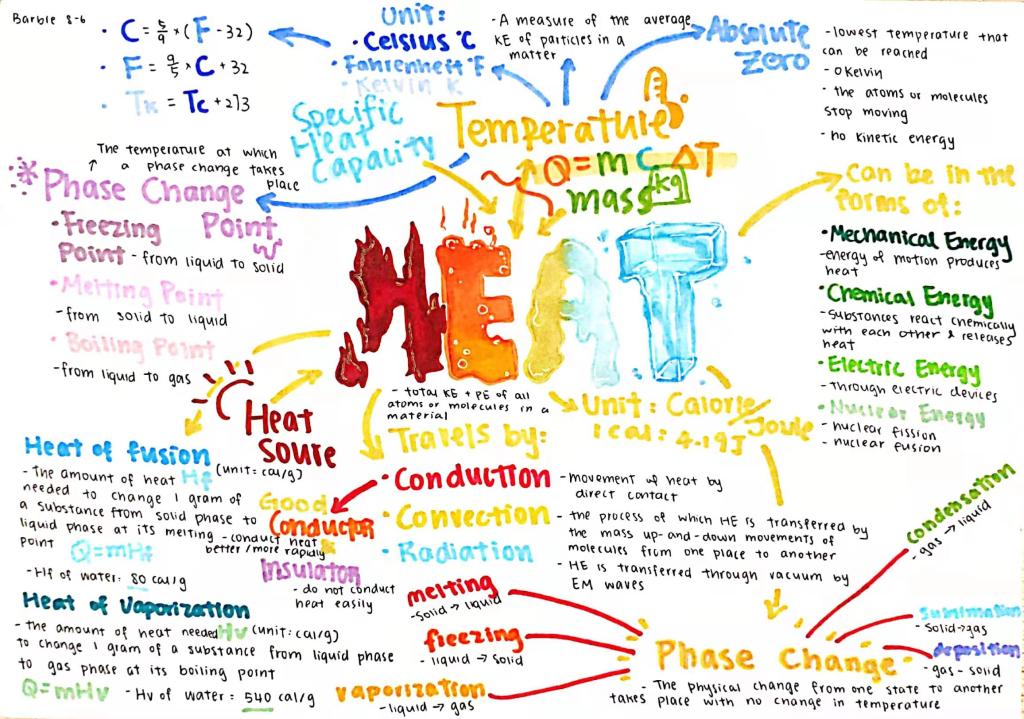 Barbie 8-6
• C = 5/9 × (F - 32)
• F = 9/5 × C + 32
• TK = TC + 273
Unit:
• Celsius °C
• Fahrenheit °F
• Kelvin K
- A measure of the average
KE of particles in a
matter
Absolute
Zero
- lowest temperature that
can be reached
- 0 Kelvin
- the atoms or molecules
stop moving
- no kinetic energy
Specific
Heat
Capacity
Temperature
Q = m C ΔT
mass kg
The temperature at which
a phase change takes
place
* Phase Change
Point
• Freezing
Point - from liquid to solid
• Melting Point
- from solid to liquid
• Boiling Point
- from liquid to gas
HEAT
- total KE + PE of all
atoms or molecules in a
material
Can be in the
forms of:
• Mechanical Energy
- energy of motion produces
heat
• Chemical Energy
- substances react chemically
with each other & releases
heat
• Electric Energy
- through electric devices
• Nuclear Energy
- nuclear fission
- nuclear fusion
Heat
Soure
Unit: Calorie/Joule
1 cal: 4.19J
Heat of fusion
Hf (unit: cal/g)
- the amount of heat
needed to change 1 gram of
a substance from solid phase to
liquid phase at its melting
point Q=mHf
- Hf of water: 80 cal/g
Heat of Vaporization
- the amount of heat needed Hv (unit: cal/g)
to change 1 gram of a substance from liquid phase
to gas phase at its boiling point
Q=mHv - Hv of water: 540 cal/g
Travels by:
• Conduction - movement of heat by
direct contact
• Convection - the process of which HE is transferred by
the mass up-and-down movements of
molecules from one place to another
• Radiation - HE is transferred through vacuum by
EM waves
Good
Conductor
- conduct heat
better/more rapidly
Insulator
- do not conduct
heat easily
melting
- solid → liquid
freezing
- liquid → solid
vaporization
- liquid → gas
condensation
- gas → liquid
sublimation
- solid → gas
deposition
- gas - solid
Phase Change
- The physical change from one state to another
takes place with no change in temperature